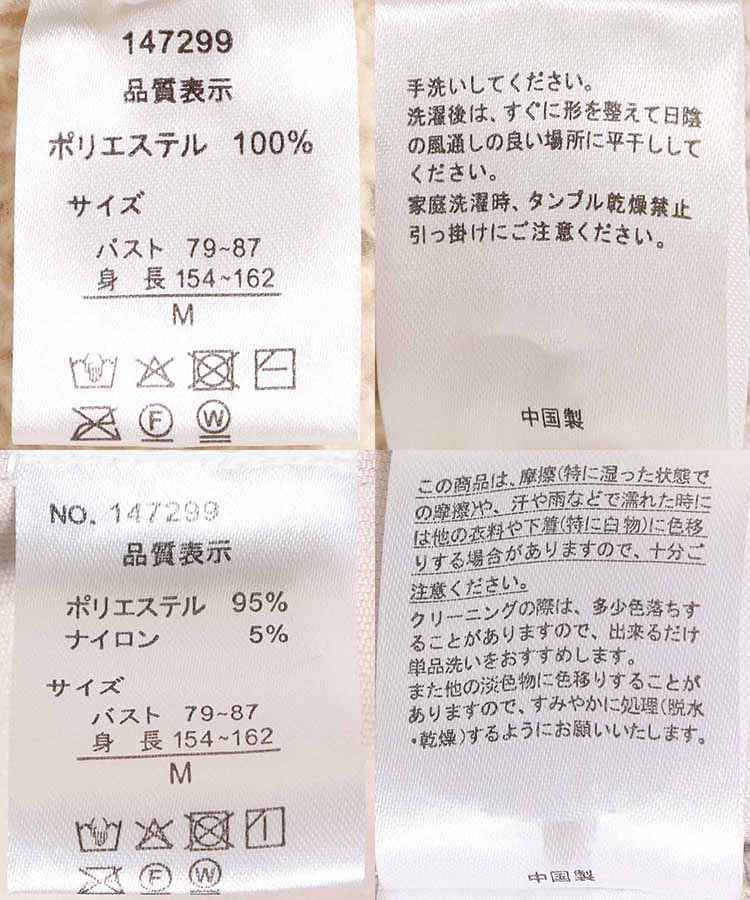 147299
品質表示
ポリエステル 100%
サイズ
バスト 79~87
身 長 154~162
M
F W
手洗いしてください。
洗濯後は、すぐに形を整えて日陰
の風通しの良い場所に平干しして
ください。
家庭洗濯時、タンプル乾燥禁止
引っ掛けにご注意ください。
中国製
NO. 147299
品質表示
ポリエステル 95%
ナイロン 5%
サイズ
バスト 79~87
身 長 154~162
M
F W
この商品は、摩擦(特に湿った状態で
の摩擦)や、汗や雨などで濡れた時に
は他の衣料や下着(特に白物)に色移
りする場合がありますので、十分ご
注意ください。
クリーニングの際は、多少色落ちす
ることがありますので、出来るだけ
単品洗いをおすすめします。
また他の淡色物に色移りすることが
ありますので、すみやかに処理(脱水
・乾燥)するようにお願いいたします。
中国製